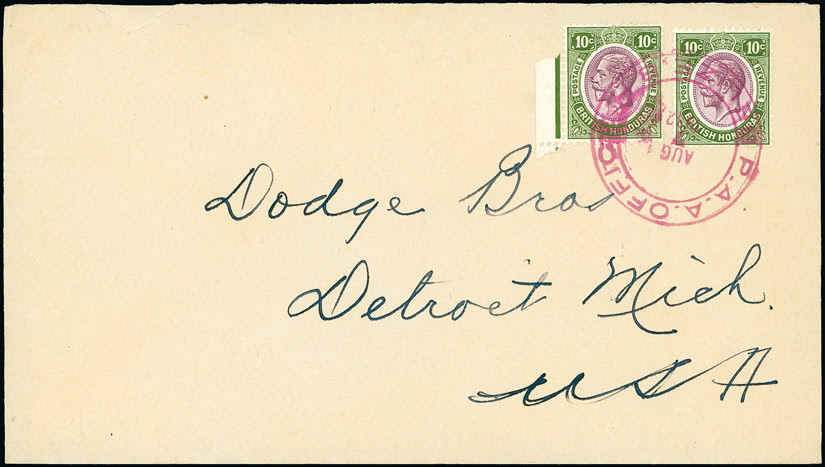 10c 10c
POSTAGE REVENUE
BRITISH HONDURAS
10c 10c
POSTAGE REVENUE
BRITISH HONDURAS
P.A.A. OFFIC
AUG 1
Dodge Bros
Detroit Mich.
USA